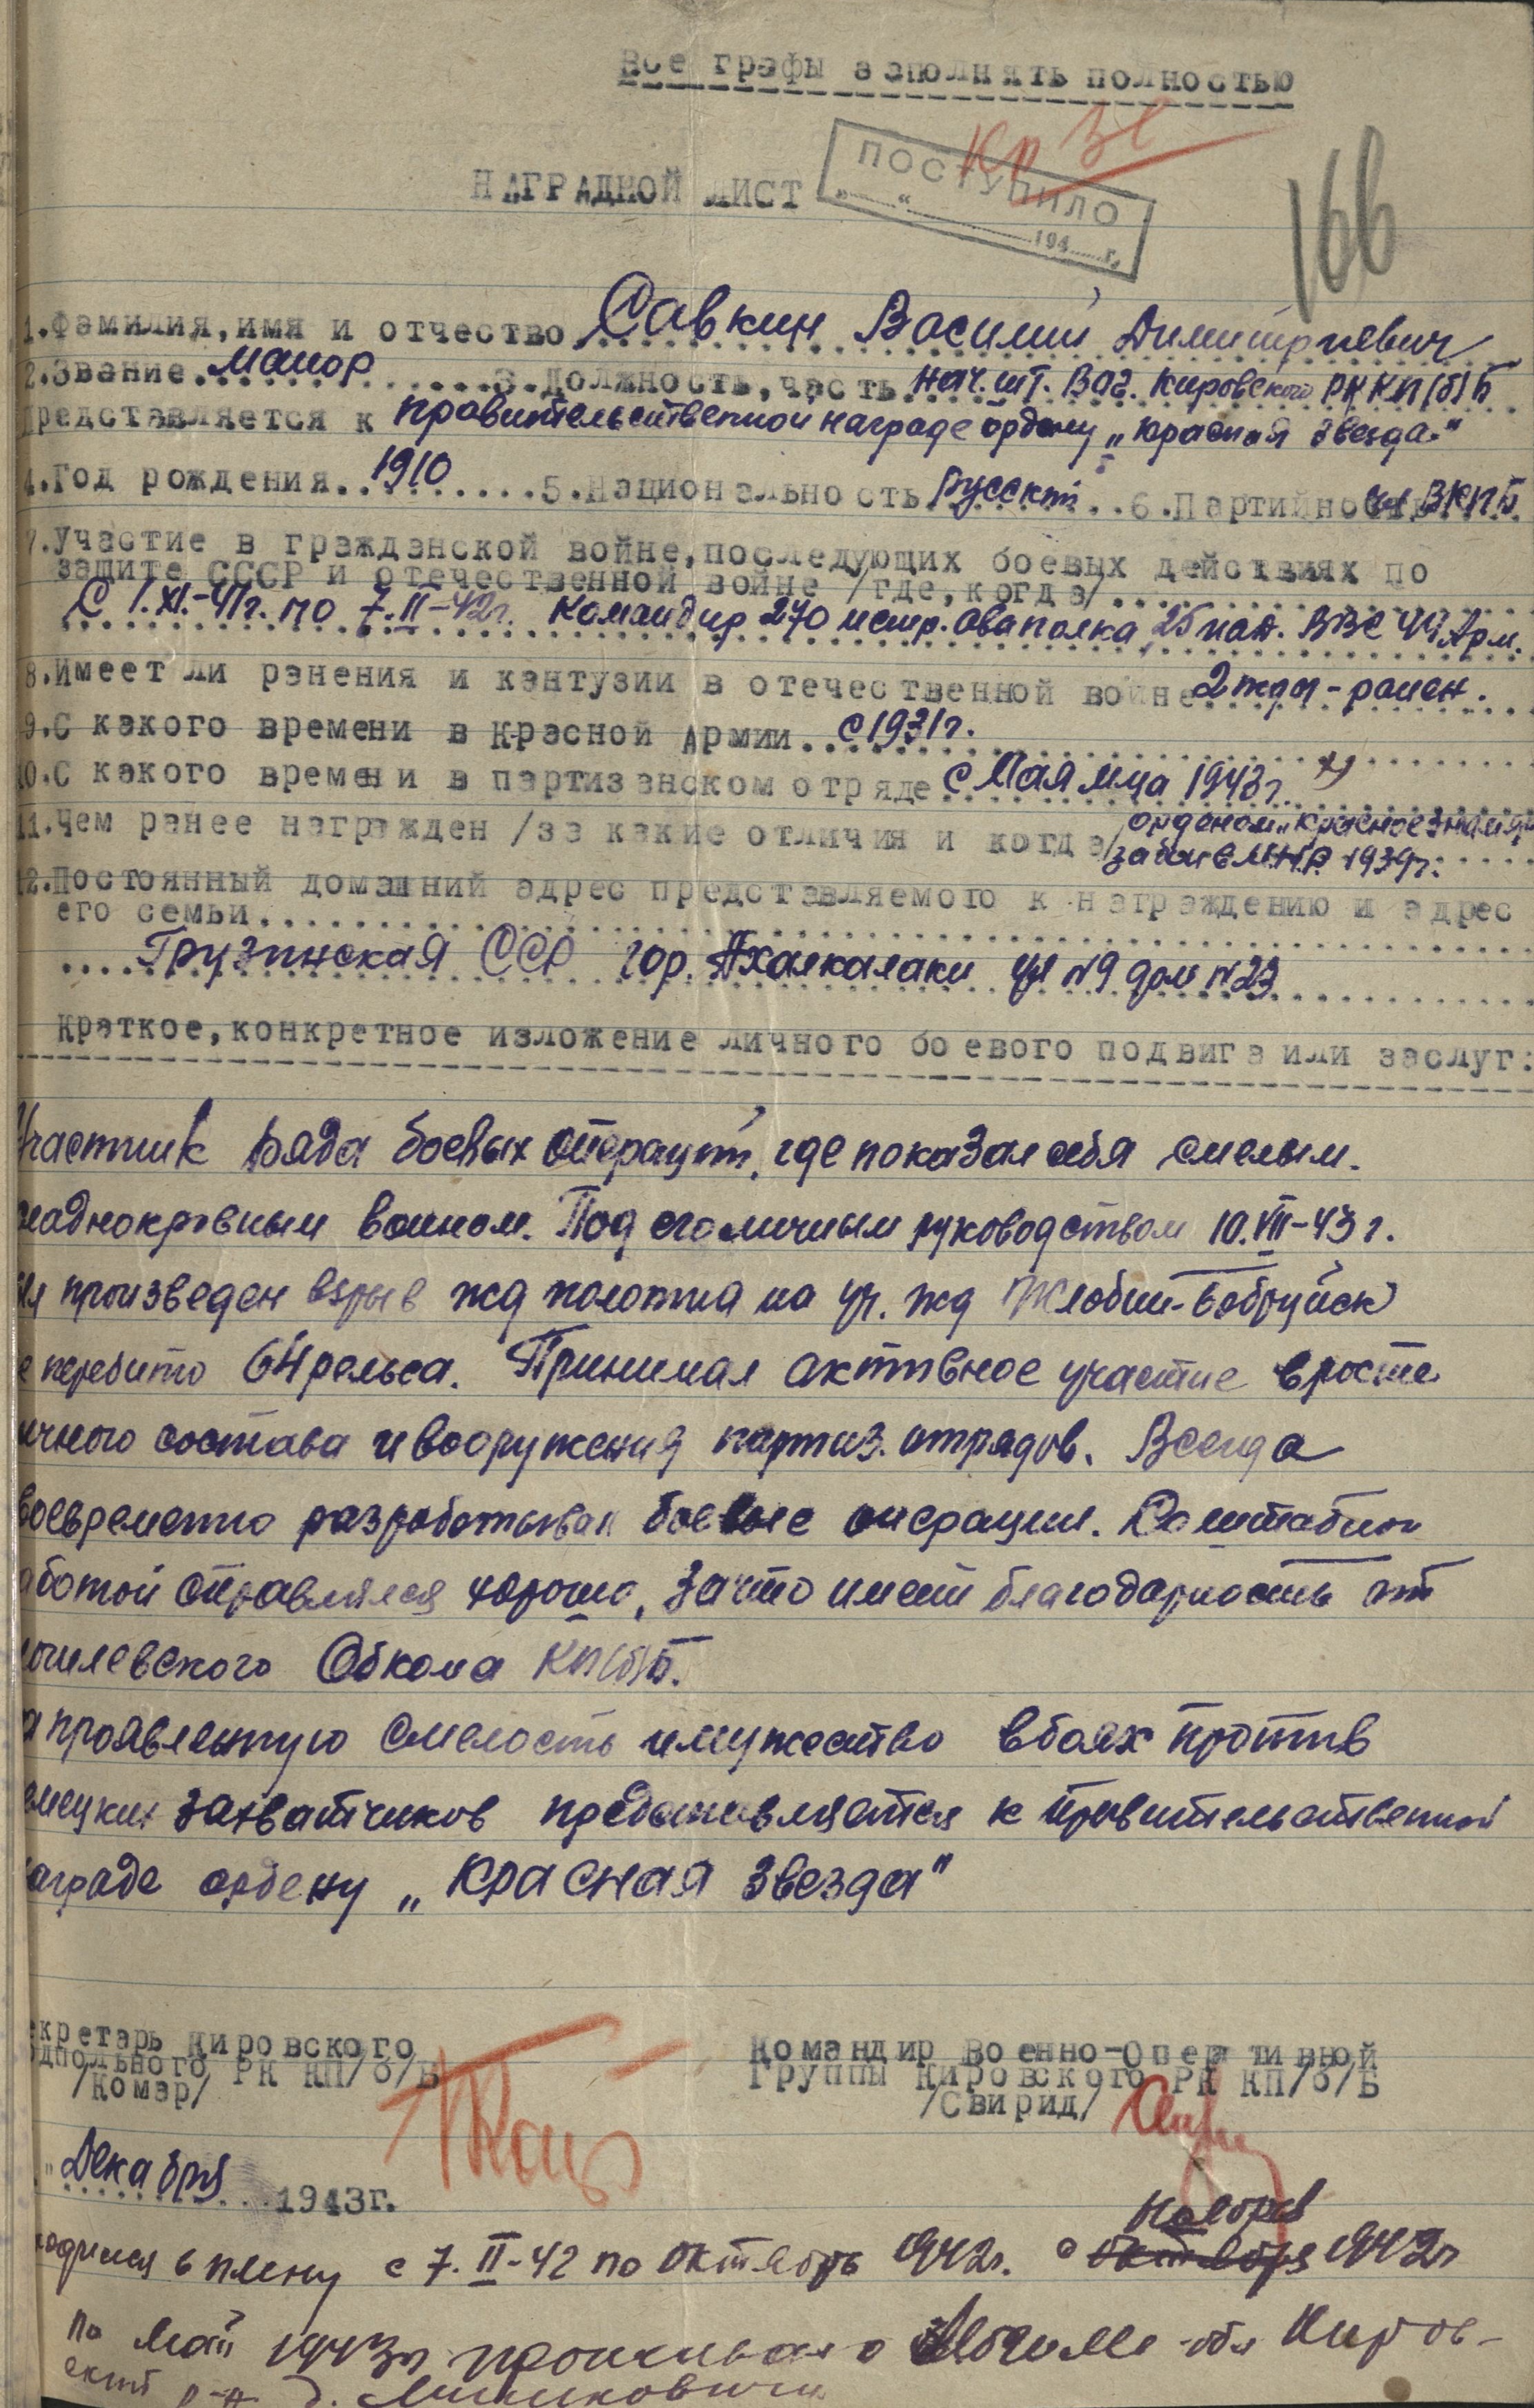 Все графы заполнять полностью
Кр Зв
ПОСТУПИЛО
„ “ 194 г.
НАГРАДНОЙ ЛИСТ
166
1.Фамилия,имя и отчество Савкин Василий Димитриевич
2.Звание маиор 3.Должность,часть Нач.шт. ВОГ. Кировского РК КП(б)Б
Представляется к правительственной награде ордену „Красная Звезда“
4.Год рождения 1910 5.Национальность Русский 6.Партийность чл ВКПБ
7.Участие в гражданской войне,последующих боевых действиях по
защите СССР и отечественной войне /где,когда/
С 1.XI.-41г. по 7.II-42г. Командир 270 истр. аваполка 25 ВВС 44 Арм.
8.Имеет ли ранения и кантузии в отечественной войне 2жды-ранен.
9.С какого времени в Красной Армии с 1931г.
10.С какого времени в партизанском отряде с Мая м-ца 1943г. х)
11.Чем ранее награжден /за какие отличия и когда/ орденом „Красное Знамя“
за бои в М.Н.Р. 1939г.
12.Постоянный домашний адрес представляемого к награждению и адрес
его семьи
Грузинская ССР гор. Ахалкалаки ул №9 дом №23
Краткое,конкретное изложение личного боевого подвига или заслуг:
Участник ряда боевых операций, где показал себя смелым.
ладнокровным воином. Под его личным руководством 10.VIII-43г.
был произведен взрыв жд полотна на уч. жд Жлобин-Бобруйск
е перебито 64 рельса. Принимал активное участие в росте
ичного состава и вооружения партиз. отрядов. Всегда
воевременно разработывал боевые операции. Со штабной
аботой справлялся хорошо, за что имеет благодарность от
огилевского Обкома КП(б)Б.
а проявленную смелость и мужество в боях против
емецких захватчиков представляется к правительственной
аграде ордену „Красная Звезда“
екретарь Кировского
одпольного РК КП/б/Б
/Комар/
Командир Военно-Оперативной
Группы Кировского РК КП/б/Б
/Свирид/
„ Декабря 1943г.
ходился в плену с 7.II-42 по октябрь 1942г. с октября Ноября 1942г
по май 1943г проживал в Могилев обл Киров-
ский р-н д.